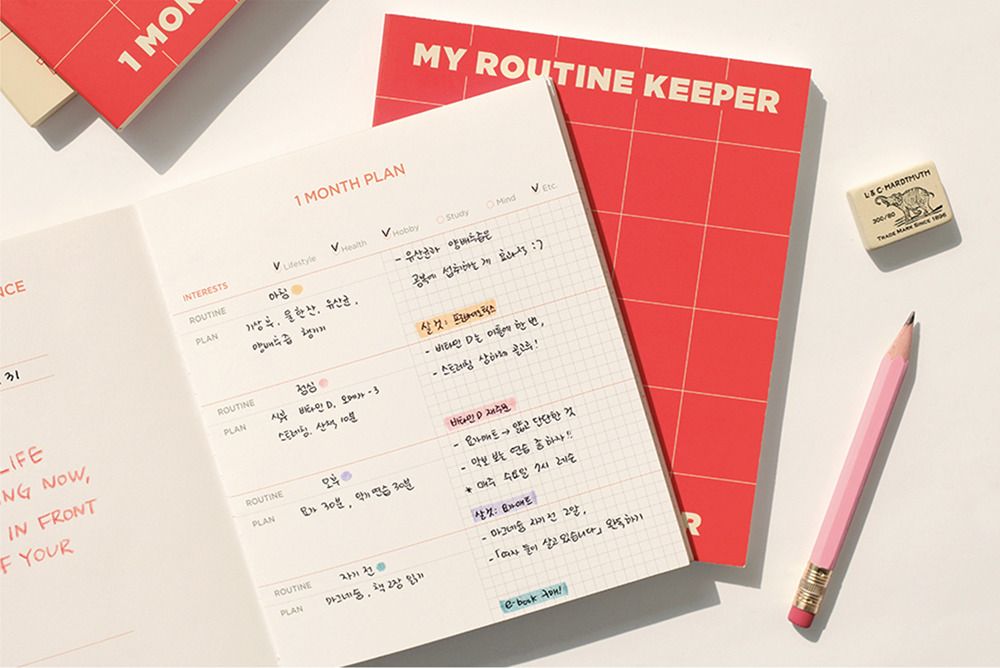 1 MON
MY ROUTINE KEEPER
L & C HARDTMUTH
300/80
TRADE MARK SINCE 1896
NCE
31
LIFE
NG NOW,
IN FRONT
F YOUR
1 MONTH PLAN
INTERESTS
Lifestyle
Health
Hobby
Study
Mind
Etc.
ROUTINE
아침
PLAN
기상 후, 물 한 잔, 유산균,
양배추즙 챙기기
- 유산균과 양배추즙은
공복에 섭취하는 게 효과적 :)
살 것: 프로바이오틱스
ROUTINE
점심
PLAN
식후 비타민 D, 오메가-3
스트레칭, 산책 10분
- 비타민 D는 이틀에 한 번,
- 스트레칭 상하체 골고루!
비타민 D 재주문
ROUTINE
오후
PLAN
요가 30분, 악기 연습 30분
- 요가매트 → 얇고 단단한 것
- 악보 보는 연습 중 하자!!
* 매주 수요일 7시 레슨
살 것: 요가매트
ROUTINE
자기 전
PLAN
마그네슘, 책 2장 읽기
- 마그네슘 자기 전 2알,
- 「여자 둘이 살고 있습니다」 완독하기
e-book 구매!
R